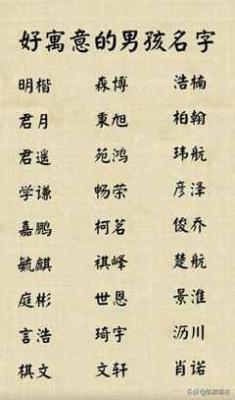 好寓意的男孩名字
明楷 森博 浩楠
君月 東旭 柏翰
君遥 苑鸿 玮航
学谦 畅荣 彦泽
嘉鹏 柯茗 俊乔
毓麒 祺峰 楚航
庭彬 世恩 景淮
言浩 琦宇 沥川
棋文 文轩 肖诺